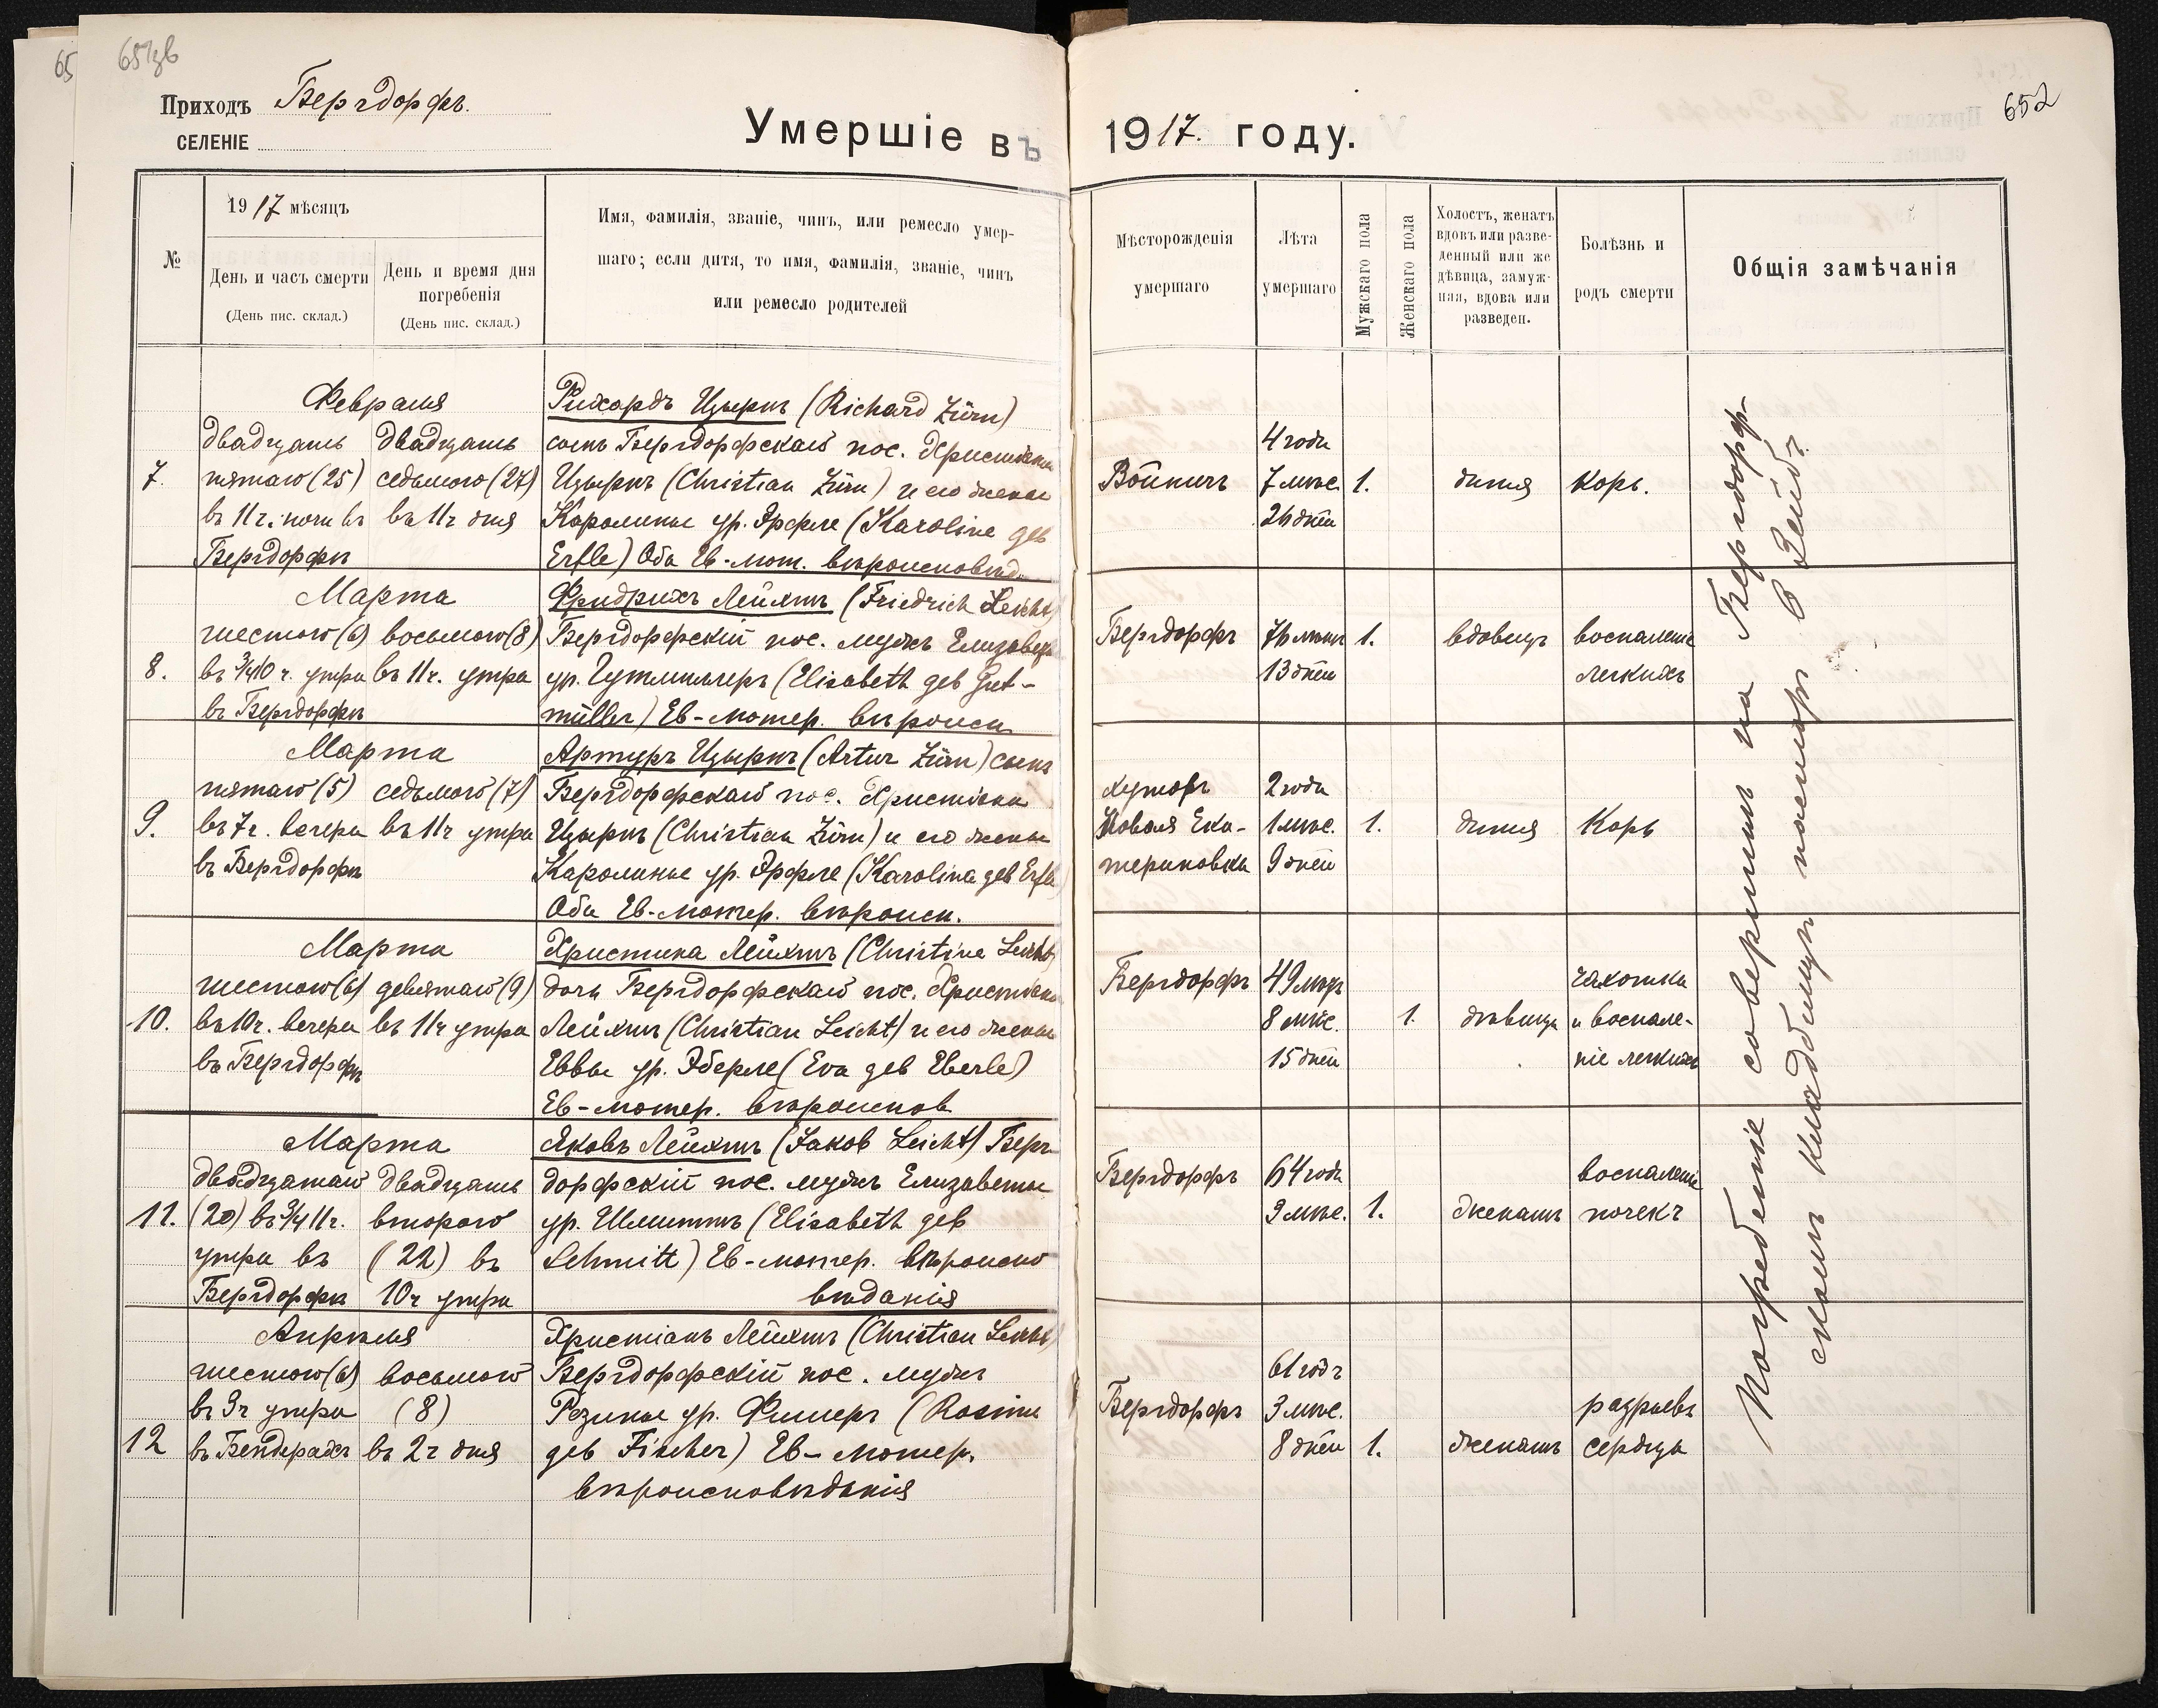 65
651зв
652
Приходъ Бергдорфъ.
СЕЛЕНІЕ
Умершіе въ 1917. году.
№
1917 мѣсяцъ
День и часъ смерти
(День пис. склад.)
День и время дня
погребенія
(День пис. склад.)
Имя, фамилія, званіе, чинъ, или ремесло умер-
шаго; если дитя, то имя, фамилія, званіе, чинъ
или ремесло родителей
Мѣсторожденія
умершаго
Лѣта
умершаго
Мужскаго пола
Женскаго пола
Холостъ, женатъ
вдовъ или разве-
денный или же
дѣвица, замуж-
няя, вдова или
разведен.
Болѣзнь и
родъ смерти
Общія замѣчанія
7.
Февраля
двадцать
пятаго (25)
въ 11 ч. ночи въ
Бергдорфѣ
двадцать
седьмого (27)
въ 11ч дня
Рихардъ Цырнъ (Richard Zürn)
сынъ Бергдорфскаго пос. Христіана
Цырнъ (Christian Zürn) и его жены
Каролины ур. Эрфле (Karoline geb
Erfle) Оба Ев-лют. вѣроисповѣд.
4 года
7 мѣс.
26 дней
1.
дитя
корь.
8.
Марта
шестого (6)
въ 3/4 10 ч. утра
въ Бергдорфѣ
восьмого (8)
въ 11ч. утра
Фридрихъ Лейхтъ (Friedrich Leicht)
Бергдорфскій пос. мужъ Елизаветы
ур. Гутмиллеръ (Elisabeth geb Gut-
müller) Ев-лютер. вѣроисп
Бергдорфъ
13 дней
1.
вдовецъ
воспаленіе
легкихъ
9.
Марта
пятаго (5)
въ 7ч. вечера
въ Бергдорфѣ
седьмого (7)
въ 11ч утра
Артуръ Цырнъ (Artur Zürn) сынъ
Бергдорфскаго пос. Христіана
Цырнъ (Christian Zürn) и его жены
Каролины ур. Эрфле (Karolina geb Erfle)
Оба Ев-лютер. вѣроисп.
хуторъ
Новая Ека-
териновка
2 года
1 мѣс.
9 дней
1.
дитя
Корь
10.
Марта
шестого (6)
въ 10ч. вечера
въ Бергдорфѣ
девятаго (9)
въ 11ч утра
Христина Лейхтъ (Christine Leicht)
дочь Бергдорфскаго пос. Христіана
Лейхтъ (Christian Leicht) и его жены
Еввы ур. Эберле (Eva geb Eberle)
Ев-лютер. вѣроиспов
Бергдорфъ
49 лѣтъ
8 мѣс.
15 дней
1.
дѣвица
чахотка
и воспале-
ніе легкихъ
11.
Марта
двадцатаго
(20) въ 3/4 11ч.
утра въ
Бергдорфѣ
двадцать
второго
(22) въ
10ч утра
Яковъ Лейхтъ (Jakob Leicht) Берг-
дорфскій пос. мужъ Елизаветы
ур. Шмиттъ (Elisabeth geb
Schmitt) Ев-лютер. вѣроиспо
вѣданія
Бергдорфъ
64 года
9 мѣс.
1.
женатъ
воспаленіе
почекъ
12
Апрѣля
шестого (6)
въ 3ч утра
въ Бендерахъ
восьмого
(8)
въ 2ч дня
Христіанъ Лейхтъ (Christian Leicht)
Бергдорфскій пос. мужъ
Розины ур. Фишеръ (Rosina
geb Fischer) Ев-лютер.
вѣроисповѣданія
Бергдорфъ
61 годъ
3 мѣс.
8 дней
1.
женатъ
разрывъ
сердца
Погребеніе совершилъ на Бергдорф-
скомъ кладбищѣ пасторъ